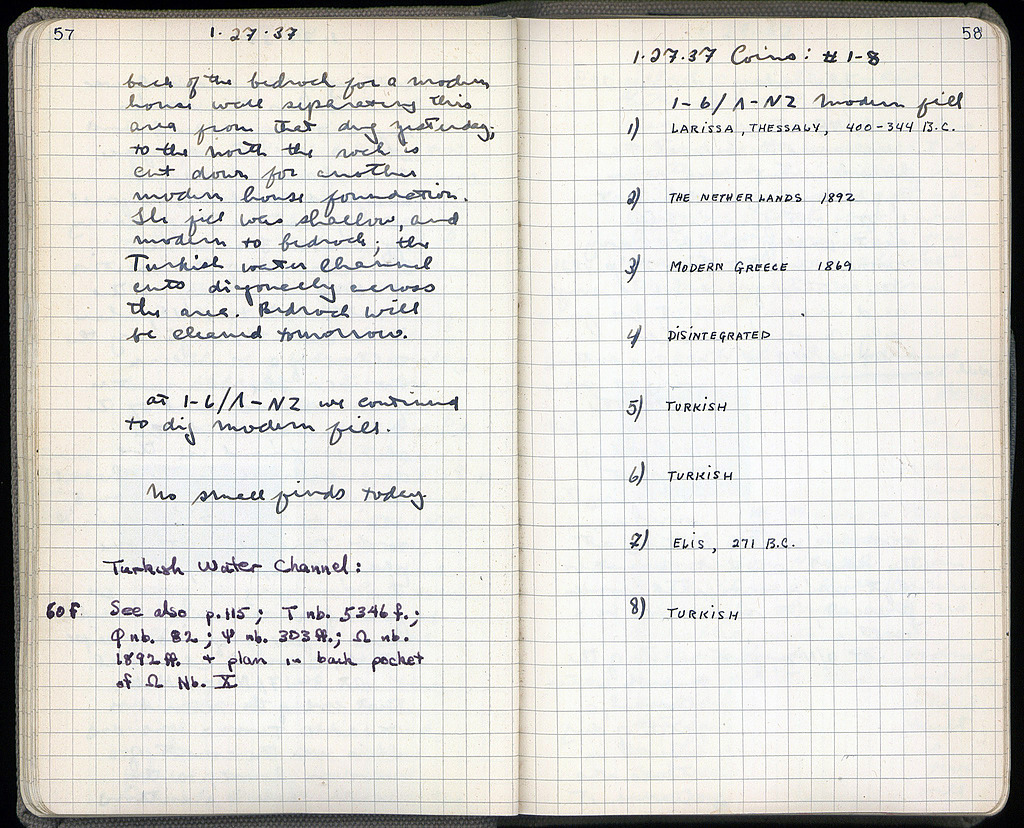 57
1·27·37
back of the bedrock for a modern
house wall separating this
area from that dug yesterday;
to the north the rock is
cut down for another
modern house foundation.
The fill was shallow, and
modern to bedrock; the
Turkish water channel
cuts diagonally across
the area. Bedrock will
be cleaned tomorrow.
at 1-6/Λ-NZ we continued
to dig modern fills.
No small finds today
Turkish Water Channel:
60f. See also p.115; T nb. 5346f.;
Φ nb. 82; Ψ nb. 303ff.; Ω nb.
1892ff. + plan in back pocket
of Ω Nb. X
58
1·27·37 Coins: #1-8
1-6/Λ-NZ modern fill
1) LARISSA, THESSALY, 400-344 B.C.
2) THE NETHERLANDS 1892
3) MODERN GREECE 1869
4) DISINTEGRATED
5) TURKISH
6) TURKISH
7) ELIS, 271 B.C.
8) TURKISH